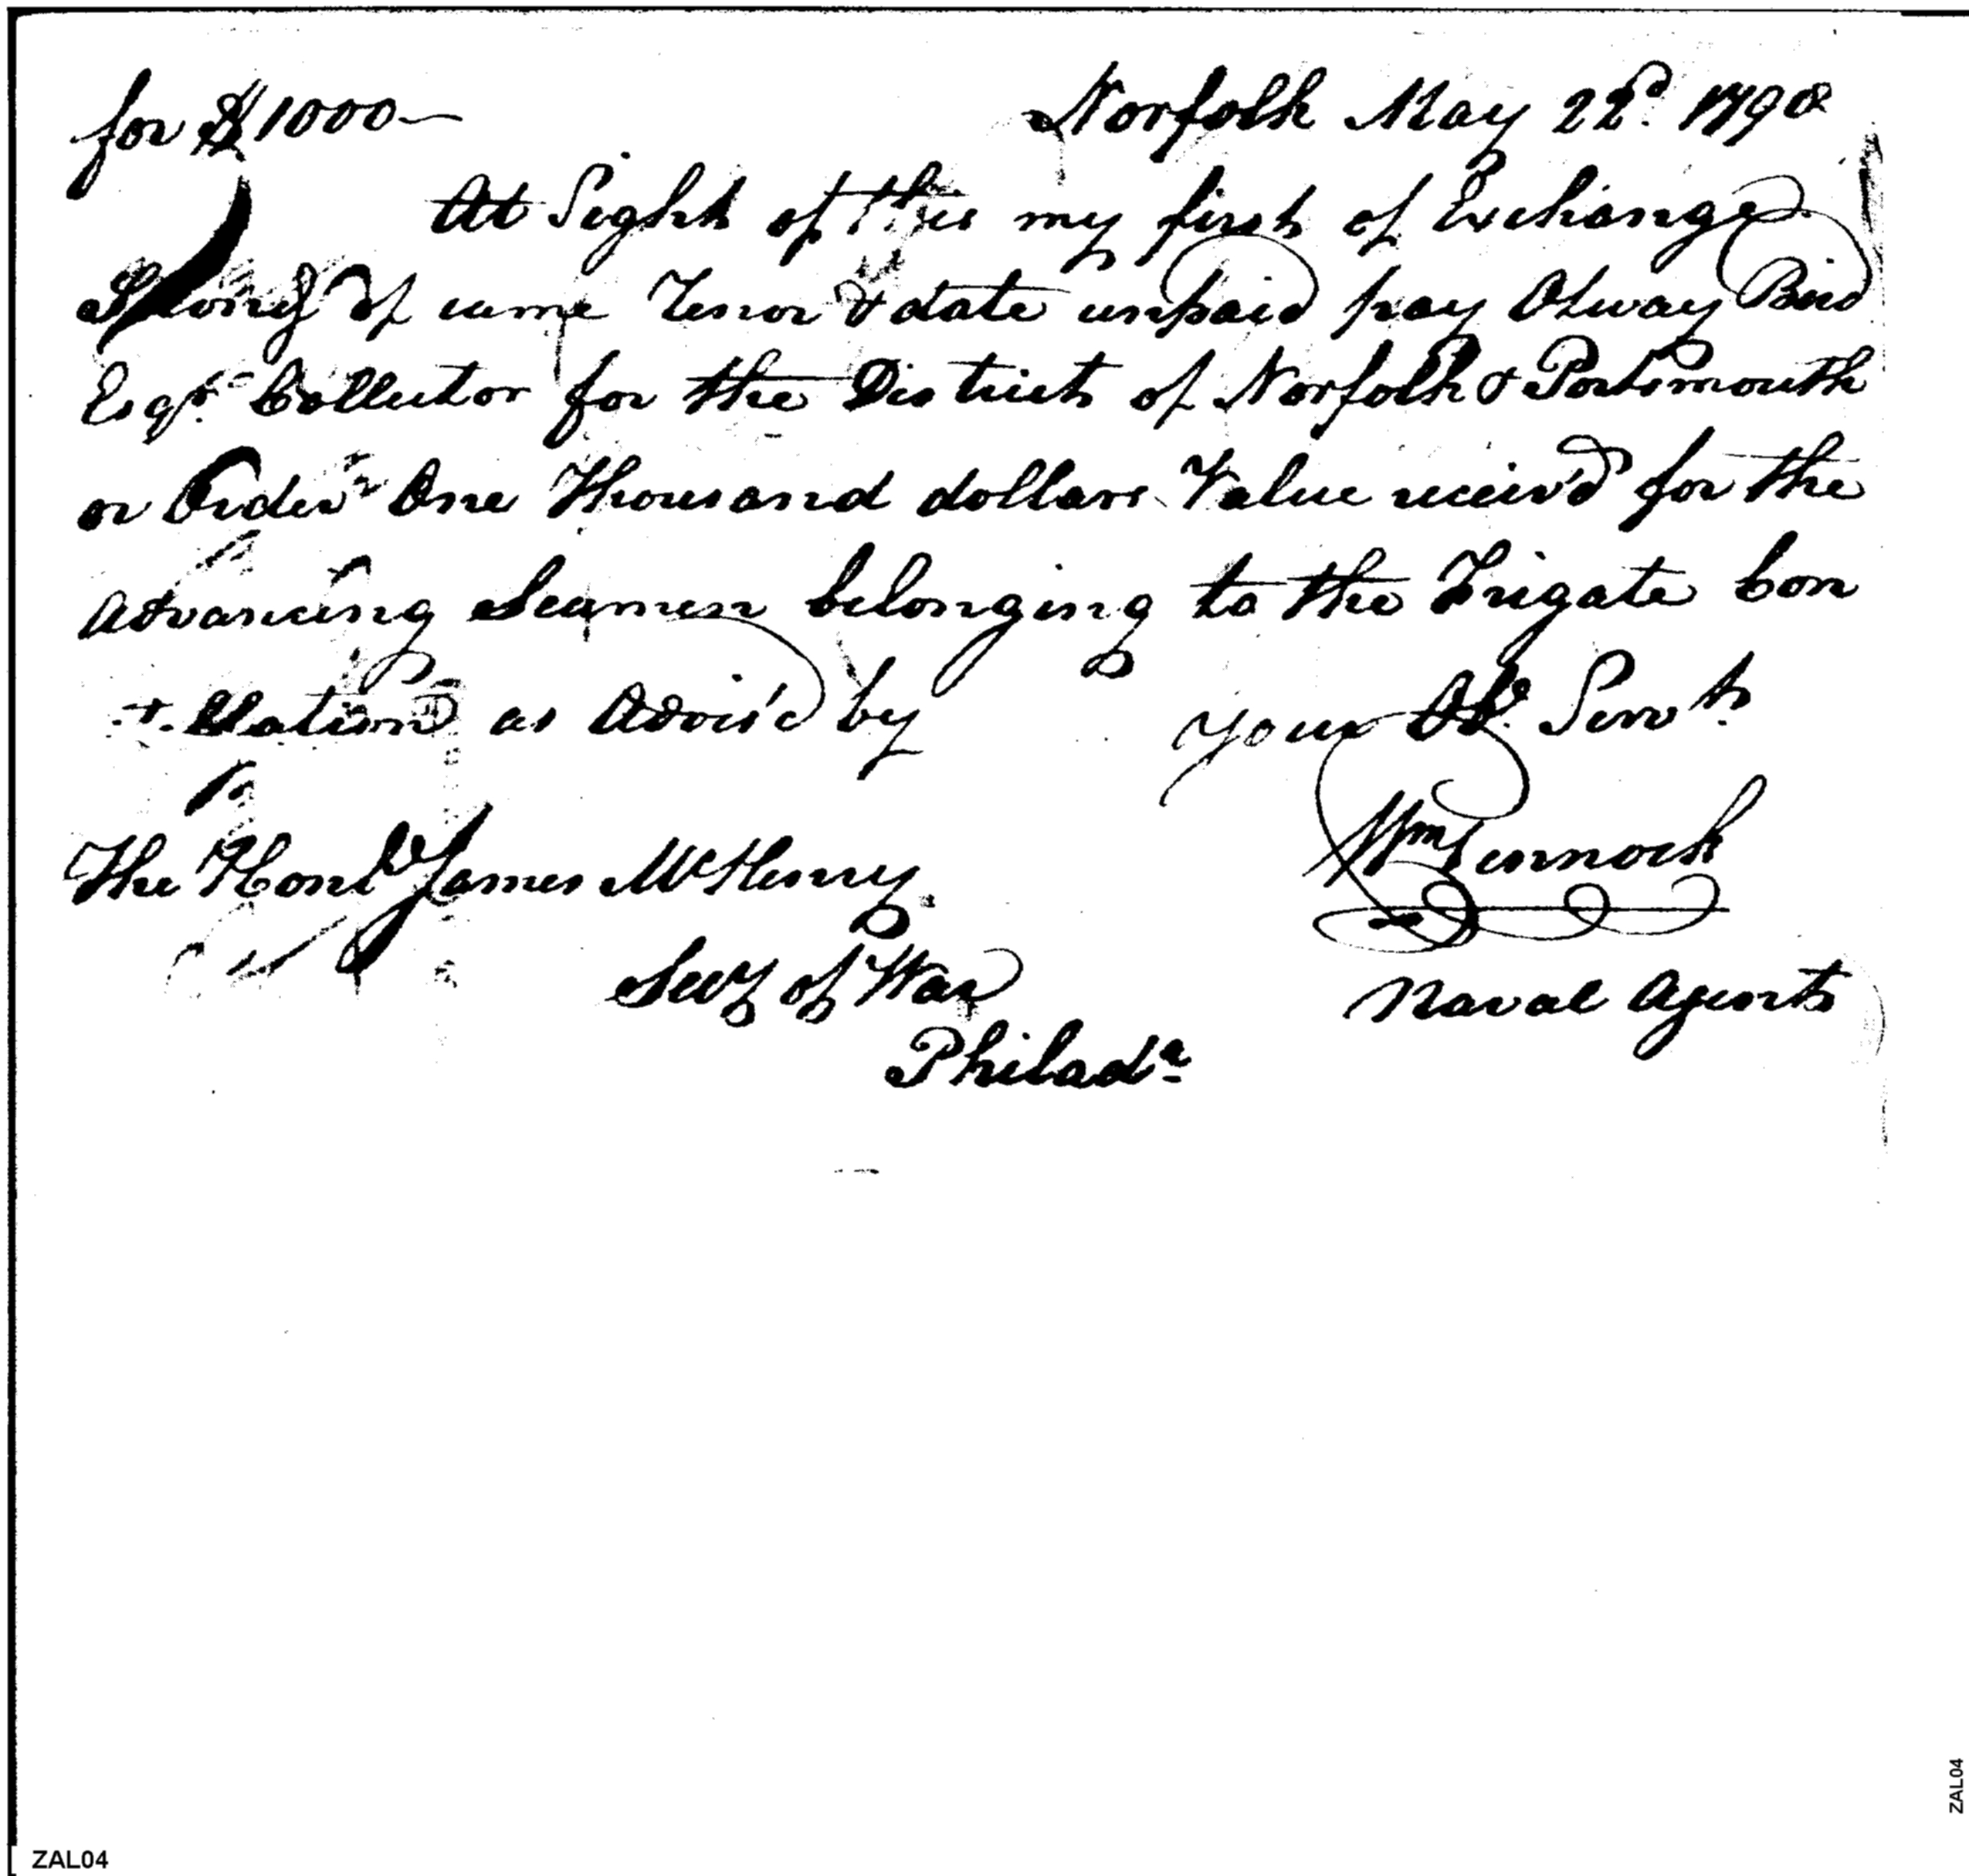 for $1000—
Norfolk May 22d. 1798
At Sight of this my first of Exchange
Second of same Tenor & date unpaid pay Otway Bird
Esqr. Collector for the District of Norfolk & Portsmouth
or Order One Thousand dollars Value receiv'd for the
Advancing Seamen belonging to the Frigate Con
-stellation as Advis'd by
your Ob. Servt.
Wm Pennock
The Honble James McHenry
Secy of War
Naval Agent
Philada
ZAL04
ZAL04